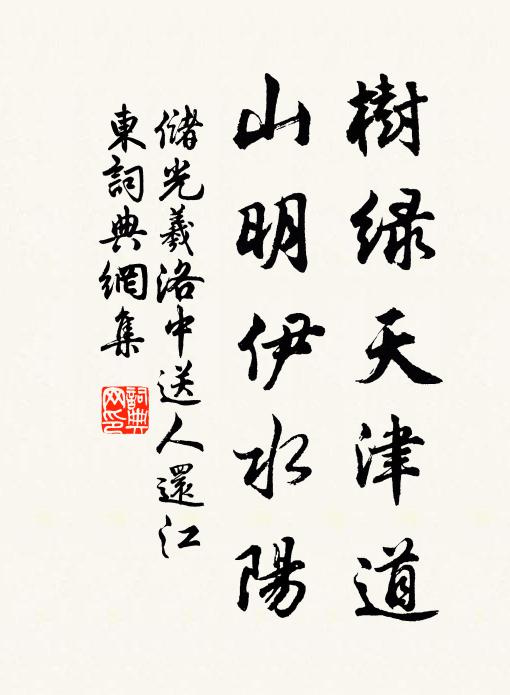 樹緑天津道
山明伊水陽
儲光羲洛中送人還江
東詞典網集
詞典
网印